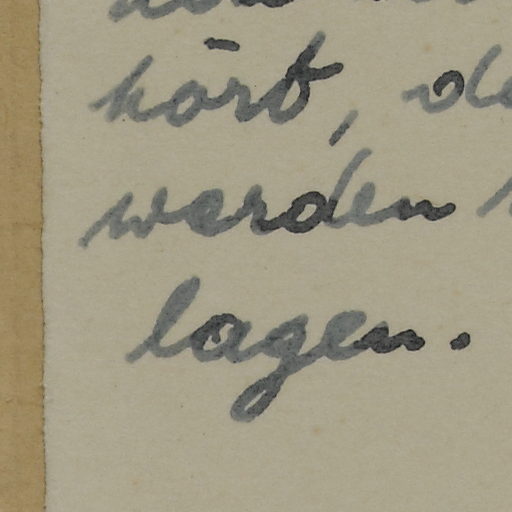 hört, de
werden
lagen.